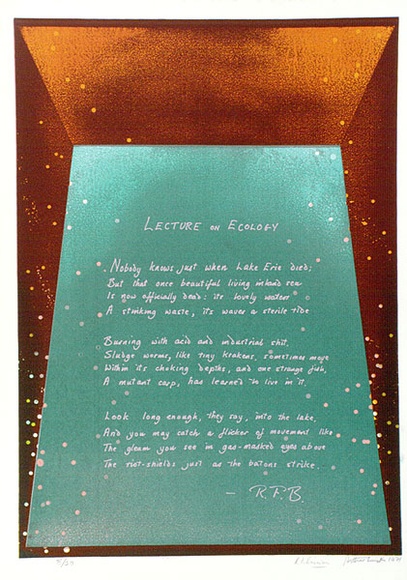 LECTURE ON ECOLOGY
Nobody knows just when Lake Erie died;
But that once beautiful living inland sea
Is now officially dead: its lovely waters
A stinking waste, its waves a sterile tide
Burning with acid and industrial shit.
Sludge worms, like tiny krakens, sometimes move
Within its choking depths, and one strange fish,
A mutant carp, has learned to live in it.
Look long enough, they say, into the lake,
And you may catch a flicker of movement like
The gleam you see in gas-masked eyes above
The riot-shields just as the batons strike.
— R.F.B.